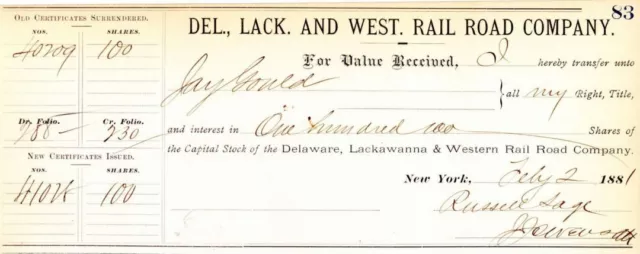 83
OLD CERTIFICATES SURRENDERED.
NOS. SHARES.
40709 100
Dr. Folio. Cr. Folio.
288 230
NEW CERTIFICATES ISSUED.
NOS. SHARES.
100
DEL., LACK. AND WEST. RAIL ROAD COMPANY.
For Value Received, I hereby transfer unto
Jay Gould all my Right, Title,
and interest in One hundred 100 Shares of
the Capital Stock of the Delaware, Lackawanna & Western Rail Road Company.
New York, Feby 2 1881
Russell Sage